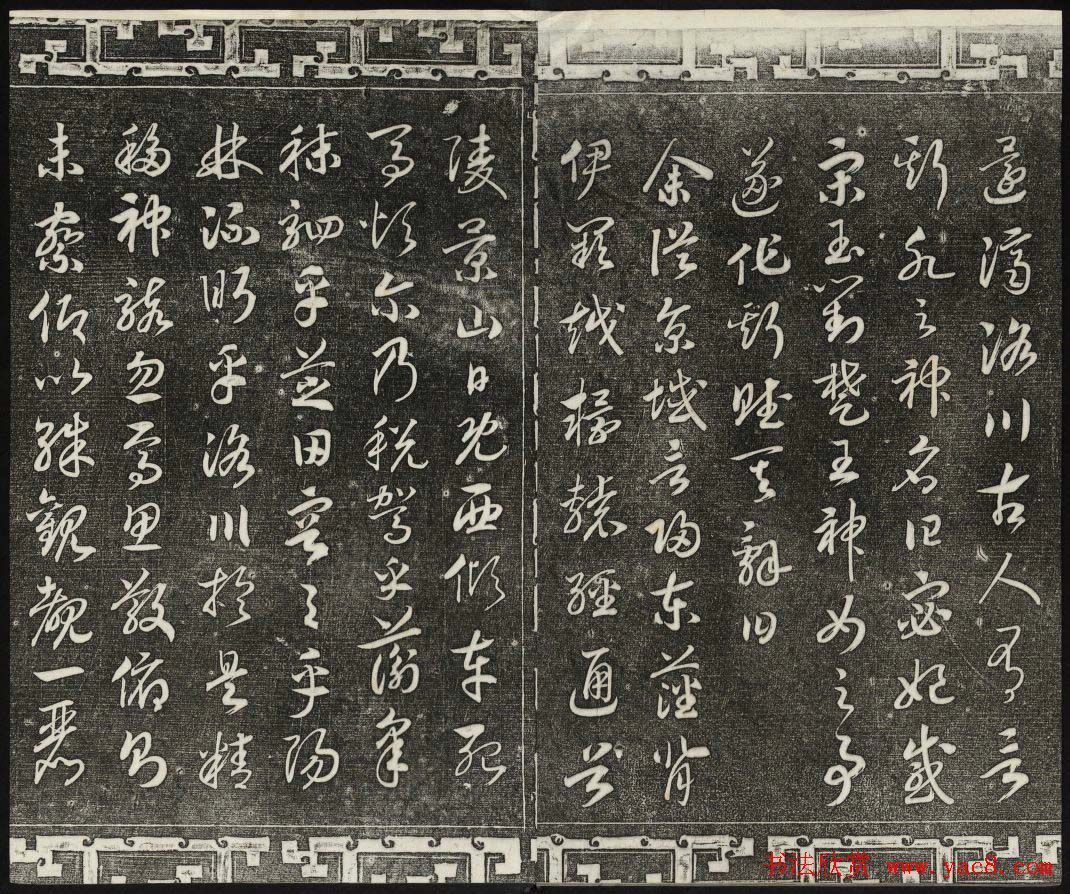 還濟洛川古人有言
斯水之神名曰宓妃感
宋玉對楚王神女之事
遂作斯賦其辭曰
余從京域言歸東藩背
伊闕越轘轅經通谷
陵景山日既西傾車殆
馬煩尔乃税駕乎蘅皋
秣駟乎芝田容與乎陽
林流眄乎洛川於是精
移神駭忽焉思散俯則
未察仰以殊觀覩一麗
书法欣赏 www.yac8.com